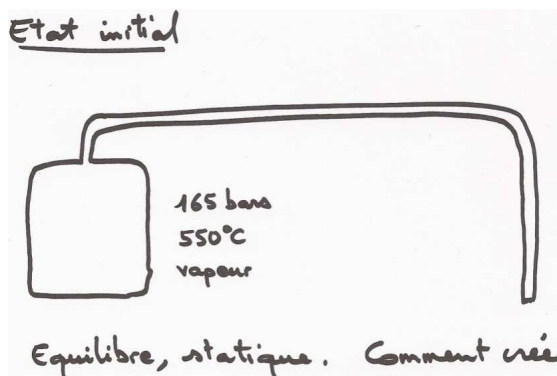 Etat initial
165 bars
550°C
vapeur
Equilibre, statique. Comment crée